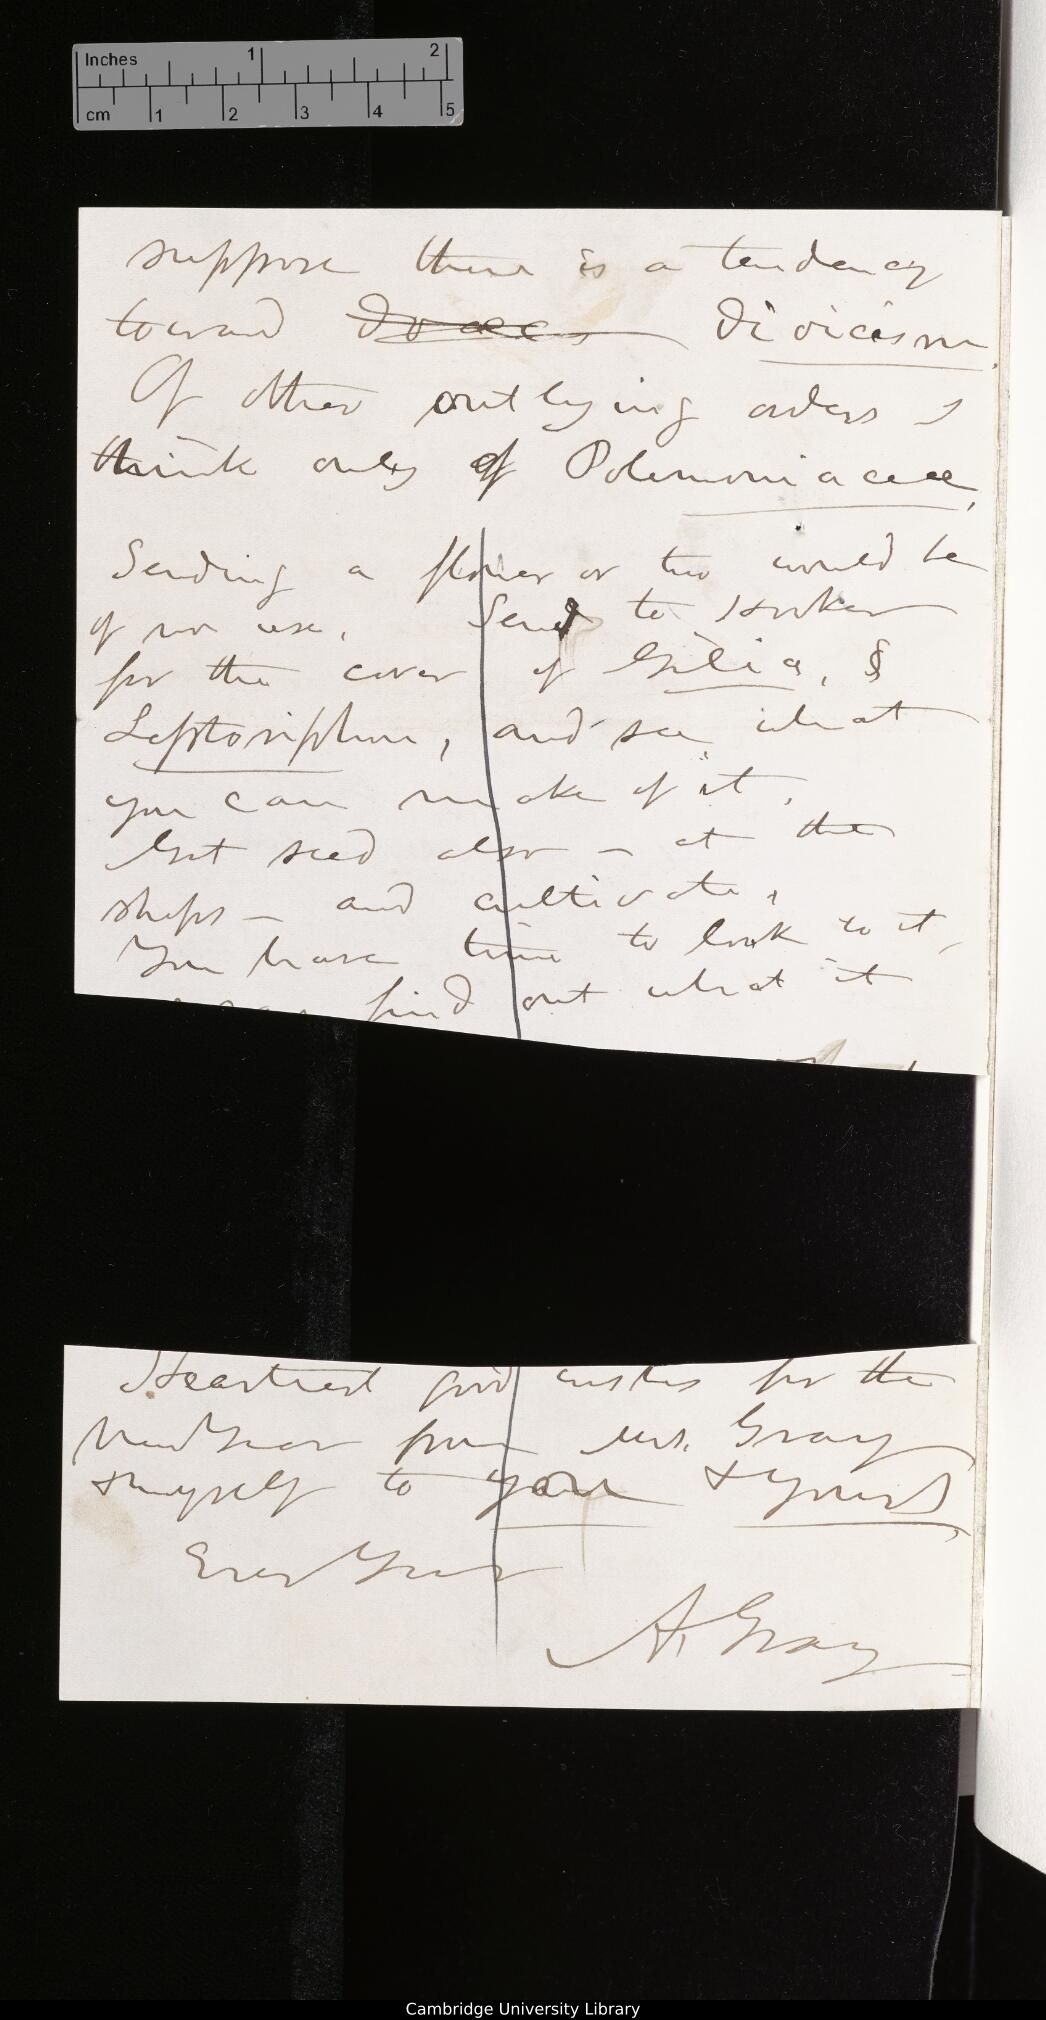 Inches 1 2
cm 1 2 3 4 5
suppose there is a tendency
toward dioicism.
Of other outlying orders I
think only of Polemoniaceæ,
Sending a flower or two would be
of no use. Send to Hooker
for the cover of Gilia, §
Leptosiphon, and see what
you can make of it.
Get seed also – at the
shops – and cultivate.
You have time to look to it,
find out what it
Heartiest good wishes for the
New Year from Mrs. Gray
& myself to you & yours
Ever Yours
A. Gray
Cambridge University Library